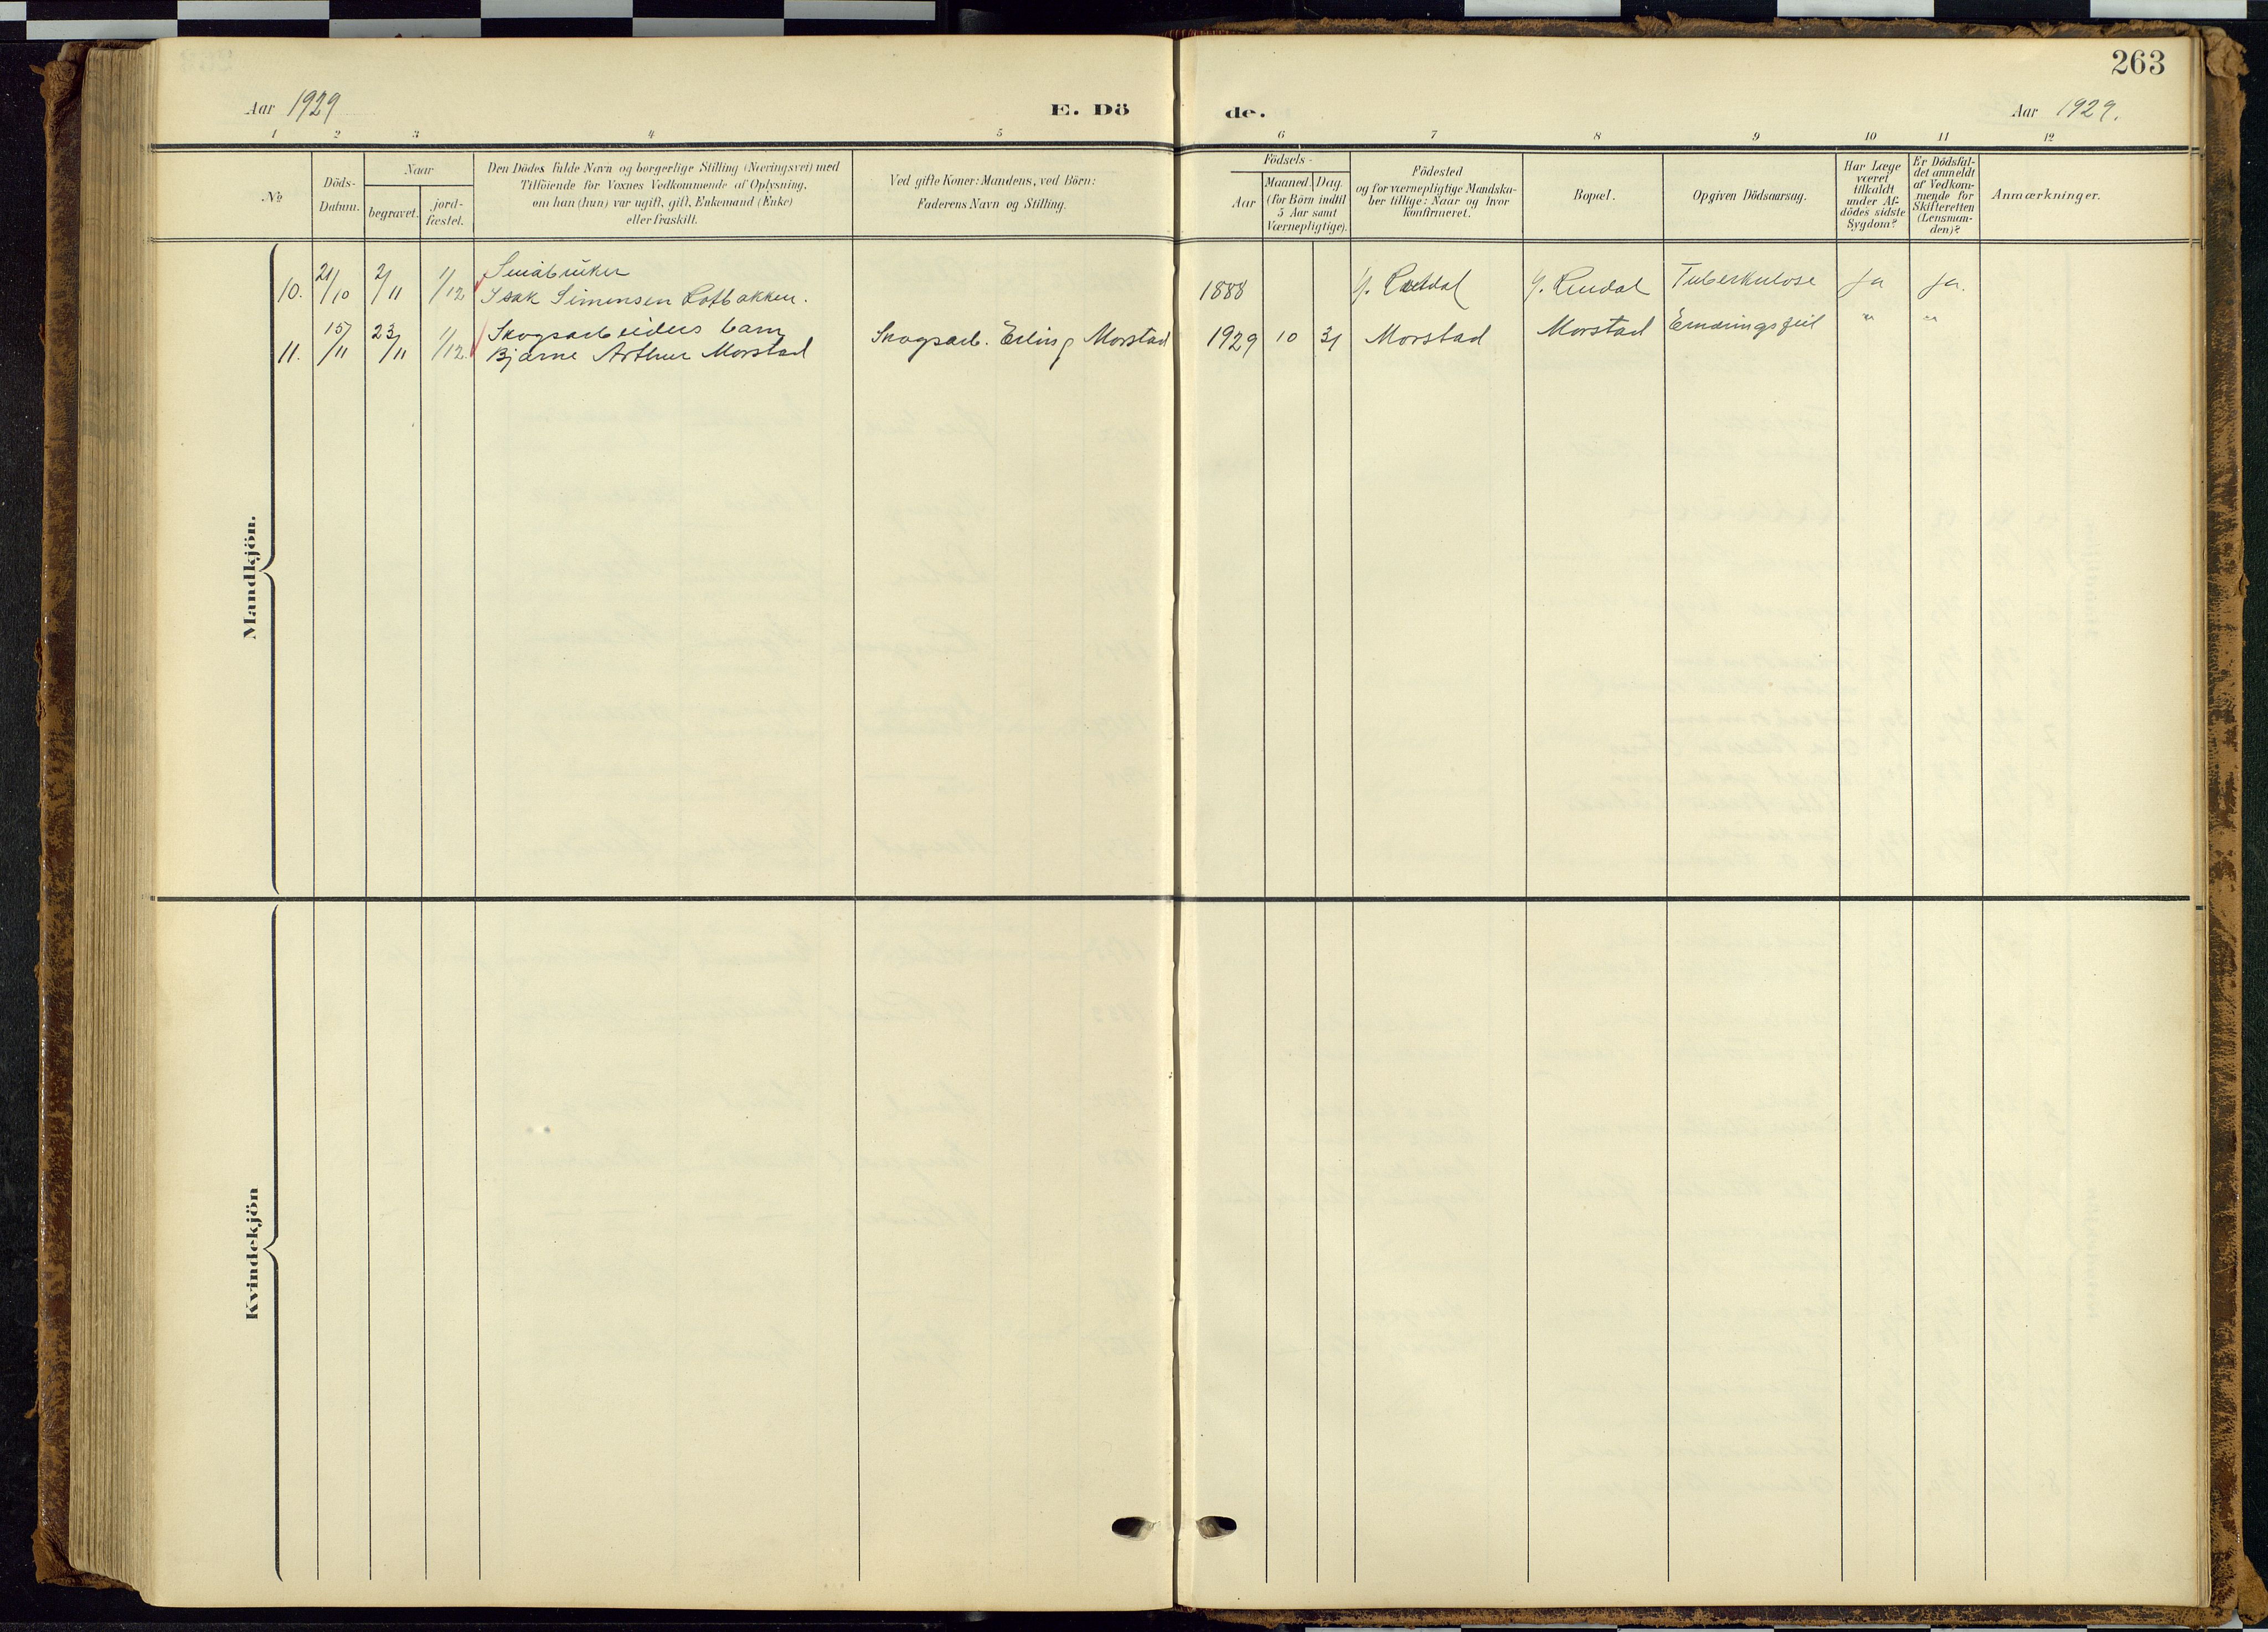 263
Aar 1929
E. Dö
de.
Aar 1929.
1 2 3 4 5 6 7 8 9 10 11 12
No
Döds-
Datum.
Naar
begravet.
jord-
fæstet.
Den Dödes fulde Navn og borgerlige Stilling (Næringsvei) med
Tilföiende for Voxnes Vedkommende af Oplysning,
om han (hun) var ugift, gift, Enkemand (Enke)
eller fraskilt.
Ved gifte Koner: Mandens, ved Börn:
Faderens Navn og Stilling.
Födsels-
Aar
Maaned. Dag.
(for Börn indtil
5 Aar samt
Værnepligtige).
Födested
og for værnepligtige Mandska-
ber tillige: Naar og hvor
konfirmeret.
Bopæl.
Opgiven Dödsaarsag.
Har Læge
været
tilkaldt
under Af-
dödes sidste
Sygdom?
Er Dödsfal-
det anmeldt
af Vedkom-
mende for
Skifteretten
(Lensman-
den)?
Anmærkninger.
Mandkjön.
Småbruker
10. 21/10 2/11 1/12 Isak Simensen 1888 Tuberkulose Ja Ja.
Skogsarbeiders barn
11. 15/11 23/11 1/12. Bjarne Arthur Morstad Skogsarb. Erling Morstad 1929 10 31 Morstad Morstad Ernæringsfeil " "
Kvindekjön